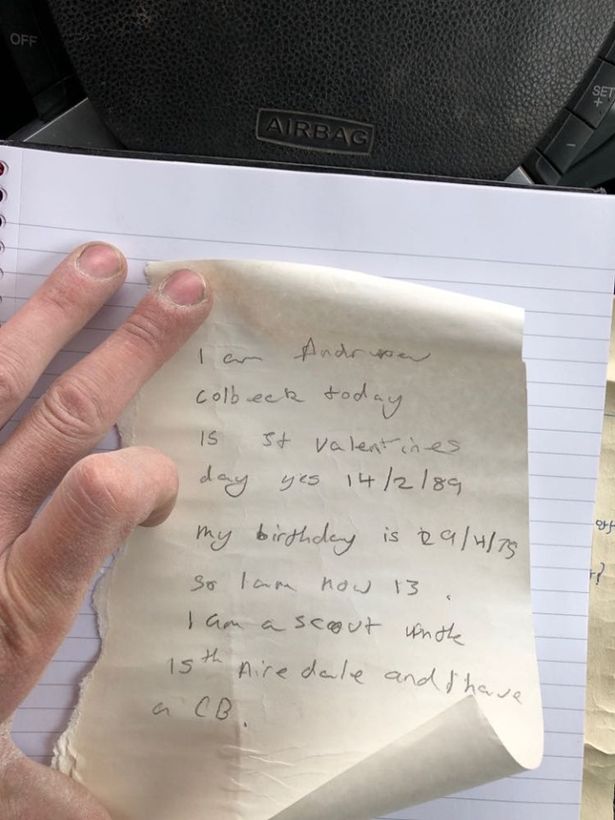 OFF
SET
+
AIRBAG
I am Andrew
Colbeck today
is St Valentines
day yes 14/2/89
my birthday is 29/4/75
so I am now 13.
I am a scout
15th Airedale and I have
a CB.